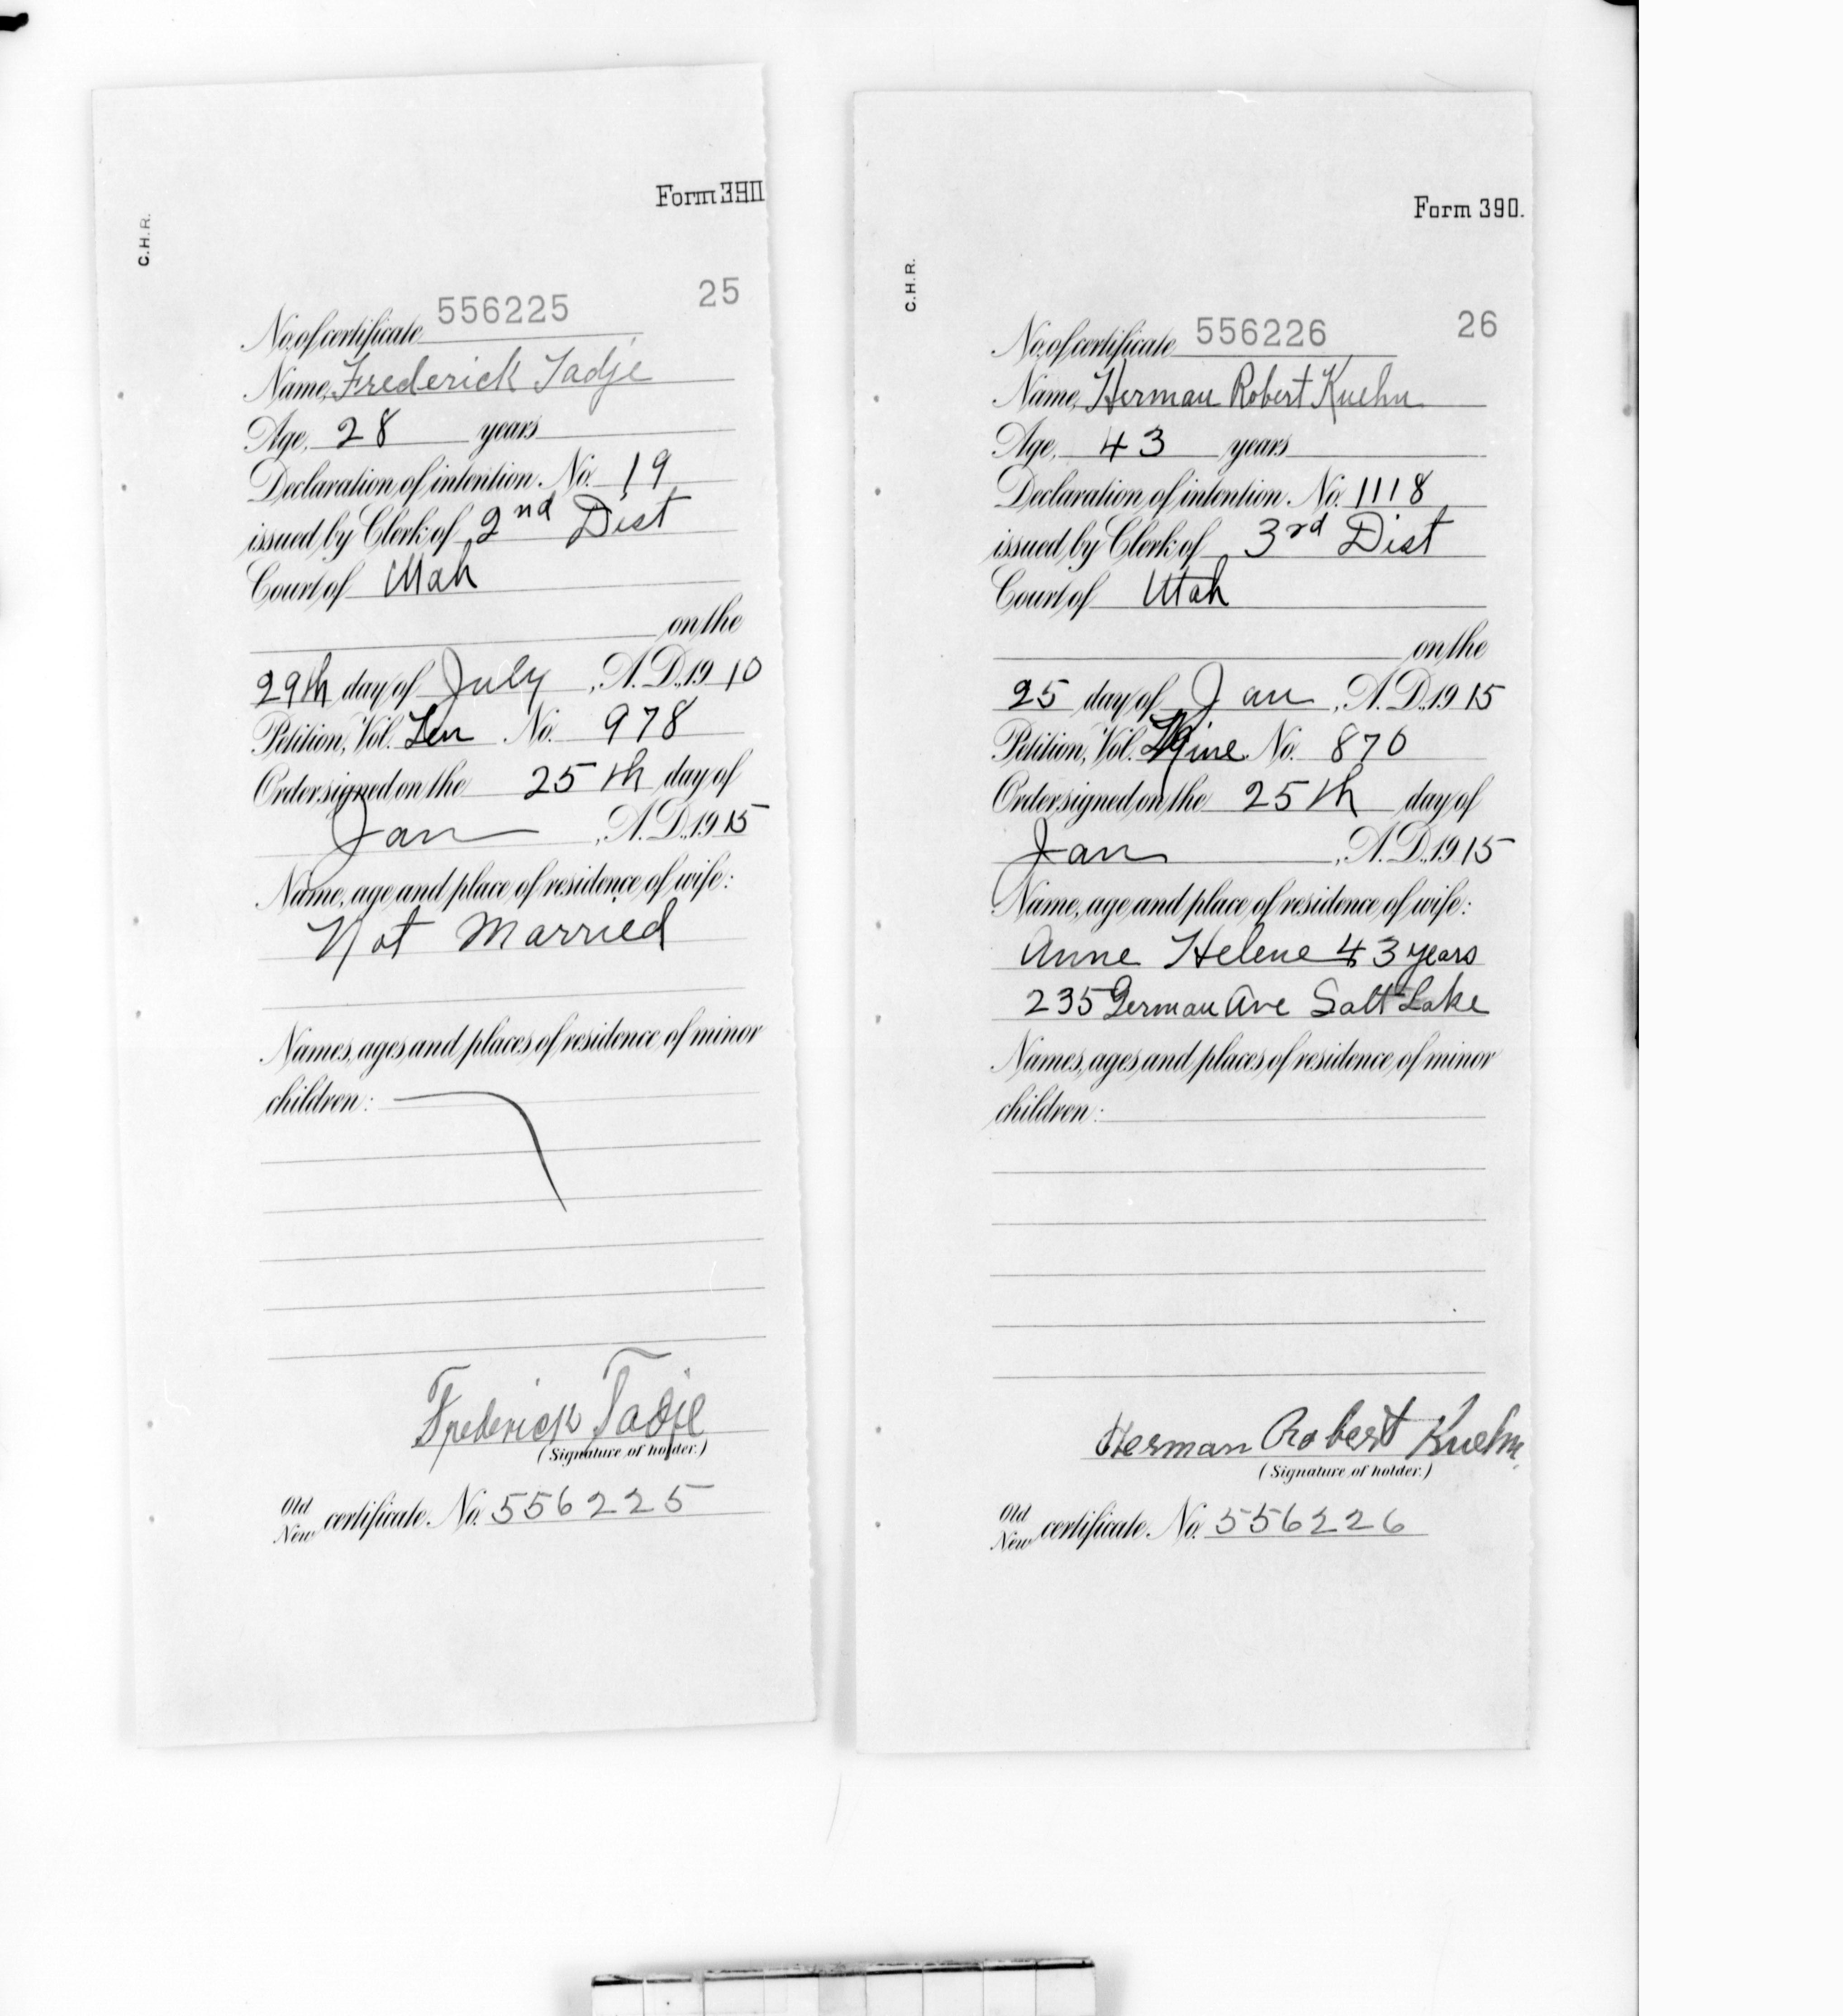 Form 390
C.H.R.
25
No. of certificate 556225
Name, Frederick Tadje
Age, 28 years
Declaration of intention No. 19
issued by Clerk of 2nd Dist
Court of Utah
on the
29th day of July, A.D. 1910
Petition, Vol. Ten No. 978
Order signed on the 25th day of
Jan, A.D. 1915
Name, age and place of residence of wife:
Not Married
Names, ages and places of residence of minor
children:
Frederick Tadje
(Signature of holder.)
Old
New certificate No. 556225
Form 390.
C.H.R.
26
No. of certificate 556226
Name, Herman Robert Kuehn
Age, 43 years
Declaration of intention No. 1118
issued by Clerk of 3rd Dist
Court of Utah
on the
25 day of Jan, A.D. 1915
Petition, Vol. Nine No. 870
Order signed on the 25th day of
Jan, A.D. 1915
Name, age and place of residence of wife:
Anne Helene 43 years
235 German Ave Salt Lake
Names, ages and places of residence of minor
children:
Herman Robert Kuehn
(Signature of holder.)
Old
New certificate No. 556226